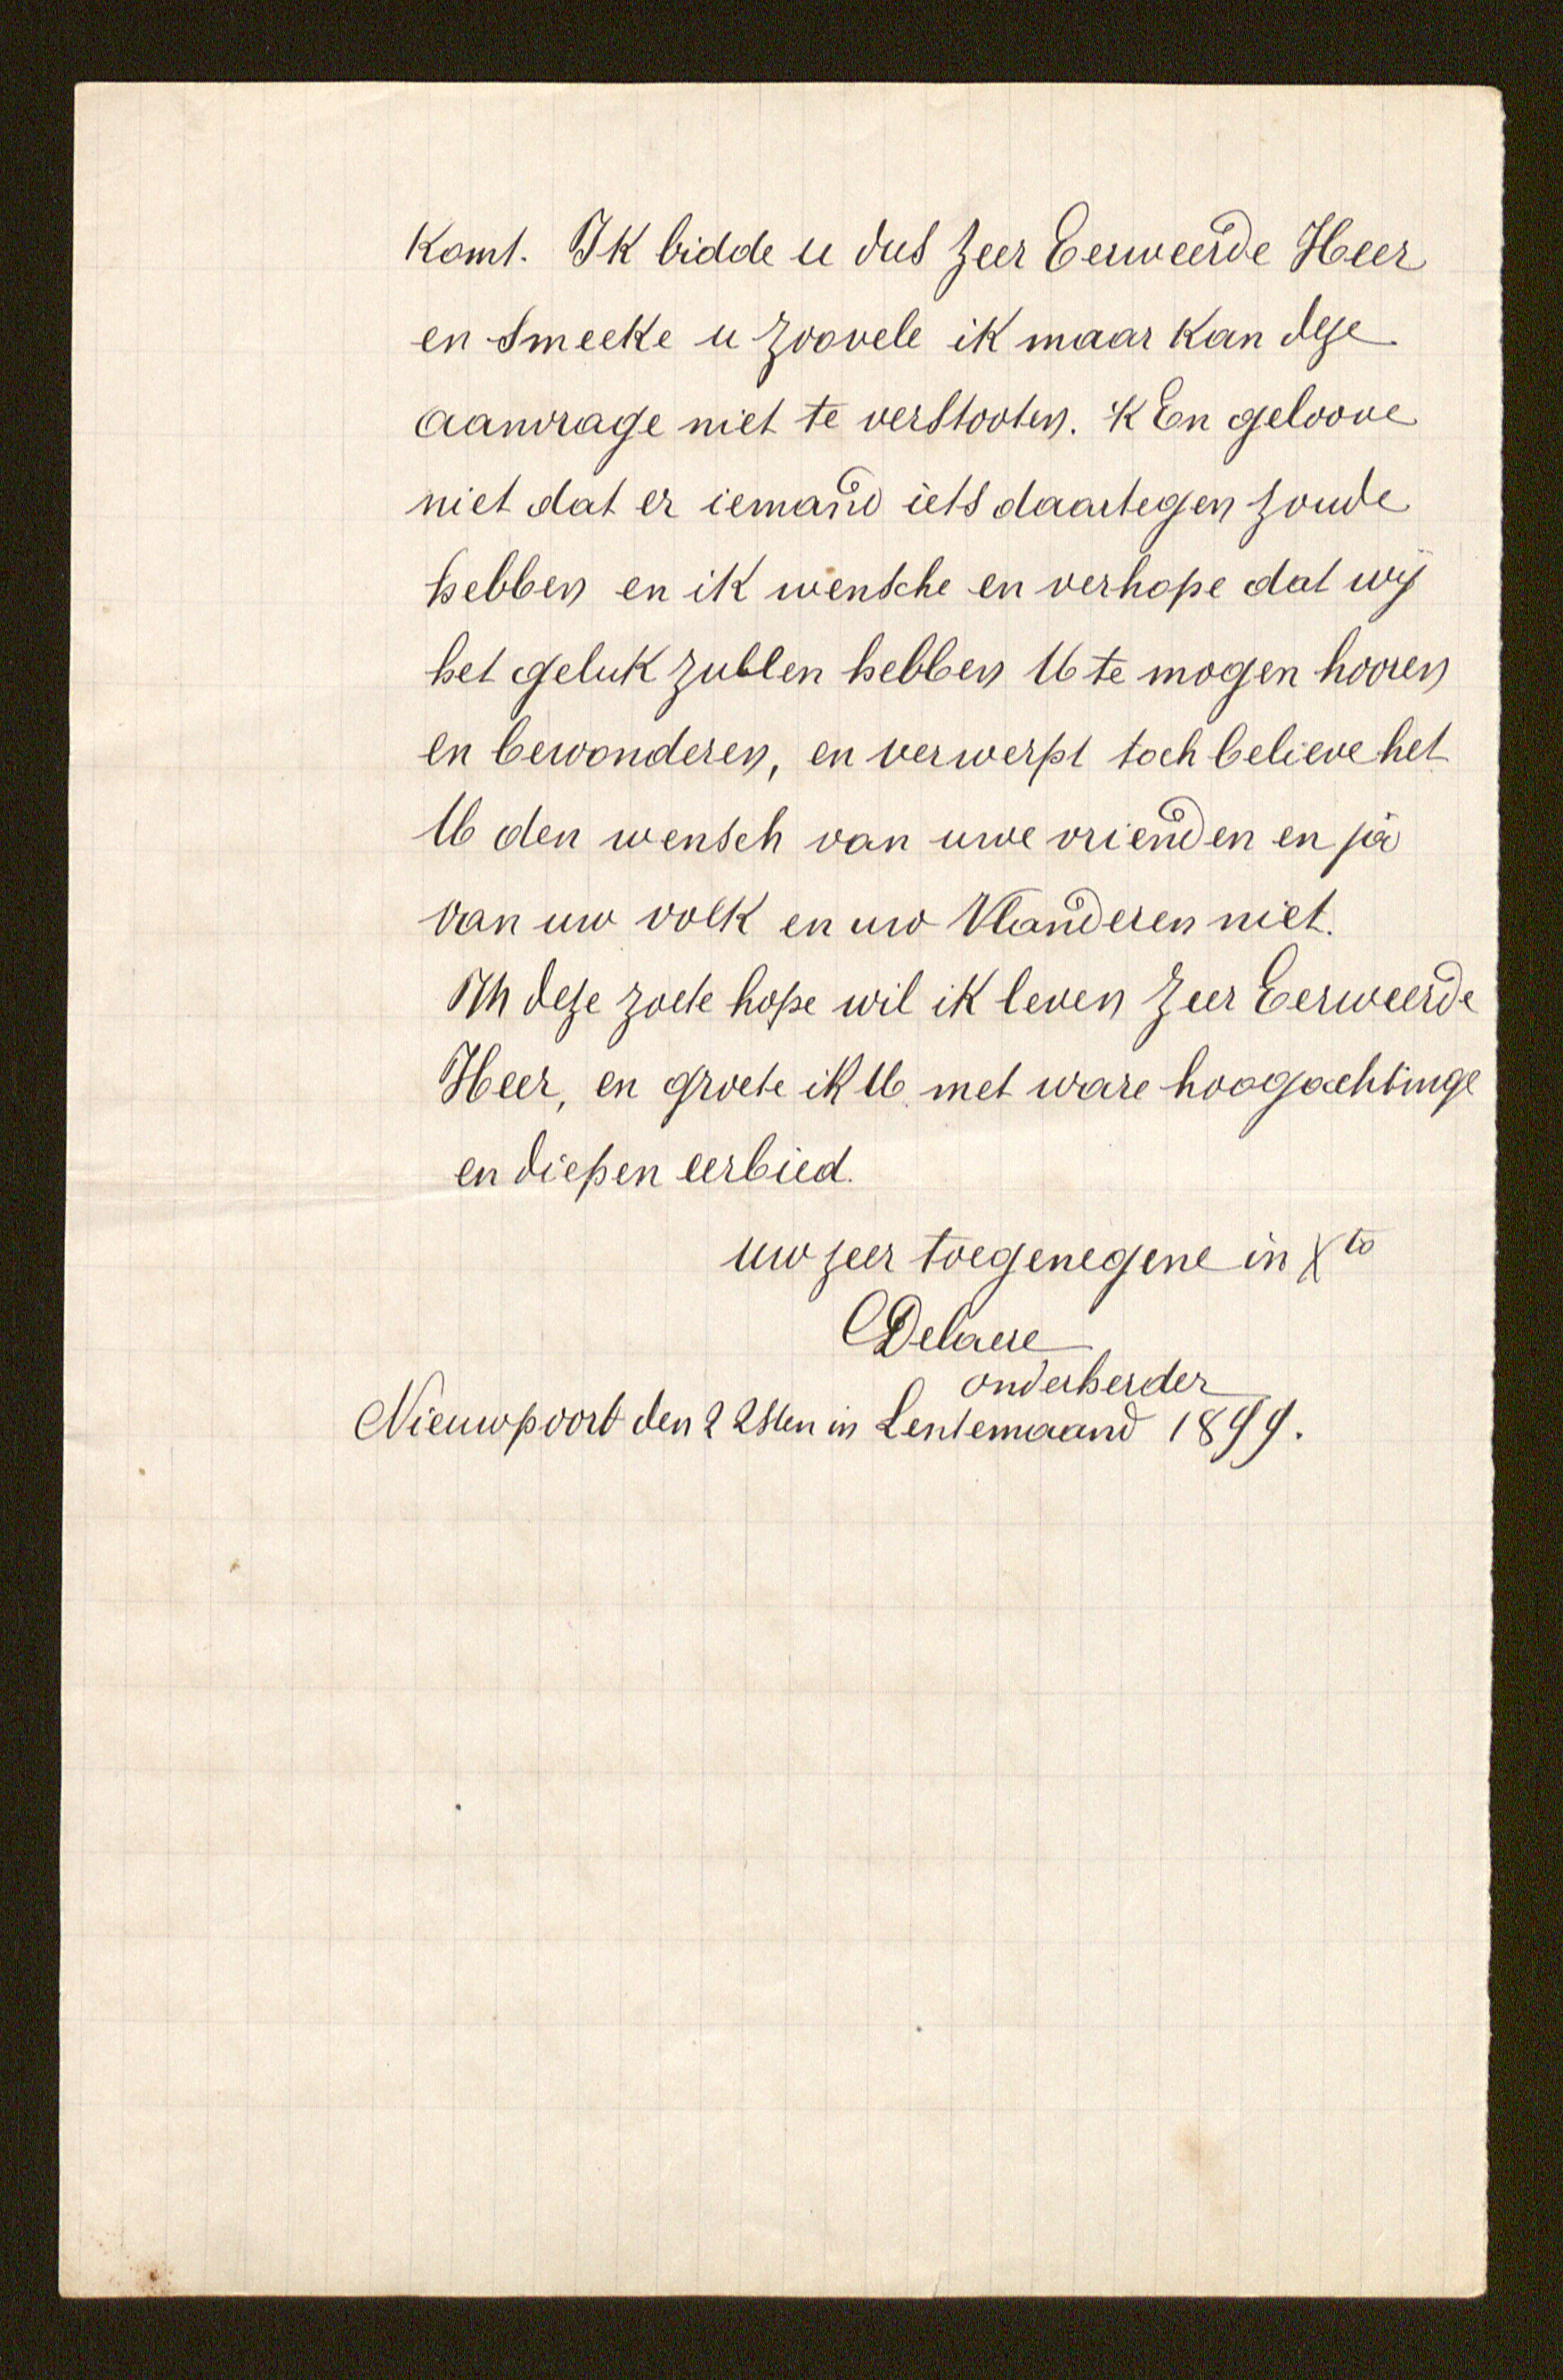 Komt. Ik bidde u dus zeer Eerweerde Heer
en smeeke u zoovele ik maar kan deze
aanvrage niet te verstooten. 'k En geloove
niet dat er iemand iets daartegen zoude
hebben en ik wensche en verhope dat wij
het geluk zullen hebben U te mogen hooren
en bewonderen, en verwerpt toch believe het
U den wensch van uwe vrienden en ja
van uw volk en uw Vlanderen niet.
In deze zoete hope wil ik leven zeer Eerweerde
Heer, en groete ik U met ware hoogachtinge
en diepen eerbied.
uw zeer toegenegene in Xto
CDelaere
onderherder
Nieuwpoort den 22sten in Lentemaand 1899.